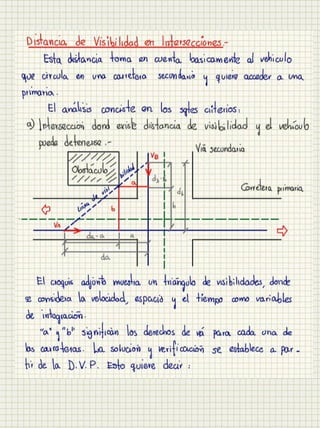 Distancia de Visibilidad en Intersecciones.-
Esta distancia toma en cuenta basicamente al vehiculo
que circula en una carretera secundario y quiere acceder a una
primaria.
El análisis conciste en los sgtes criterios:
a) Intersección dond existe distancia de visibilidad y el vehículo
puede detenerse.-
Viá secundaria
VB
Obstáculo
Línea de visibilidad
a
db-b
db
Carretera primaria
b
b
VA
da-a
a
da
El croquis adjunto muestra un triángulo de visibilidades, donde
se considera la velocidad, espacio y el tiempo como variables
de integración.
"a" y "b" significan los derechos de viá para cada una de
las carreteras. La solución y verificación se establece a par-
tir de la D.V.P. Esto quiere decir: